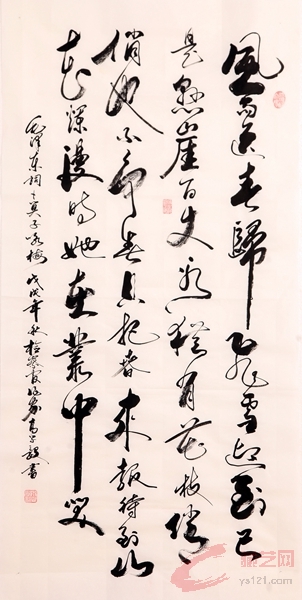 風雨送春歸飛雪迎到已
是懸崖百丈冰猶有花枝俏
俏也不爭春只把春來報待到山
花爛漫時她在叢中笑
毛澤東詞卜算子咏梅 戊戌年秋 書
艺网
ys121.com